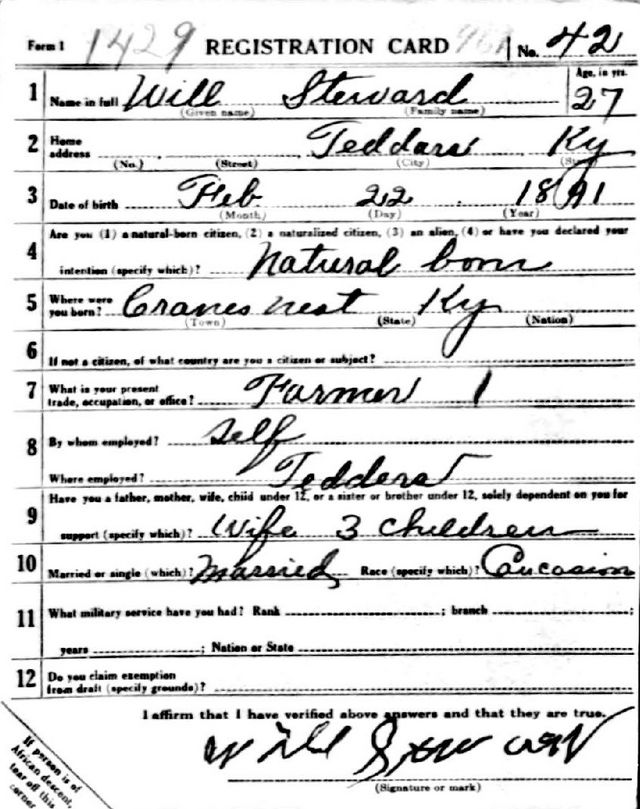 Form 1 1429 REGISTRATION CARD No. 42
1 Name in full Will Steward Age, in yrs. 27
(Given name) (Family name)
2 Home address Teddars Ky
(No.) (Street) (City)
3 Date of birth Feb 22 1891
(Month) (Day) (Year)
4 Are you (1) a natural-born citizen, (2) a naturalized citizen, (3) an alien, (4) or have you declared your
intention (specify which)? Natural born
5 Where were you born? Cranes nest Ky
(Town) (State) (Nation)
6 If not a citizen, of what country are you a citizen or subject?
7 What is your present trade, occupation, or office? Farmer 1
8 By whom employed? Self
Where employed? Tedders
9 Have you a father, mother, wife, child under 12, or a sister or brother under 12, solely dependent on you for
support (specify which)? Wife 3 children
10 Married or single (which)? Married Race (specify which)? Caucasion
11 What military service have you had? Rank ; branch ;
years ; Nation or State
12 Do you claim exemption
from draft (specify grounds)?
I affirm that I have verified above answers and that they are true.
Will Stewart
(Signature or mark)
If person is of
African descent,
tear off this
corner